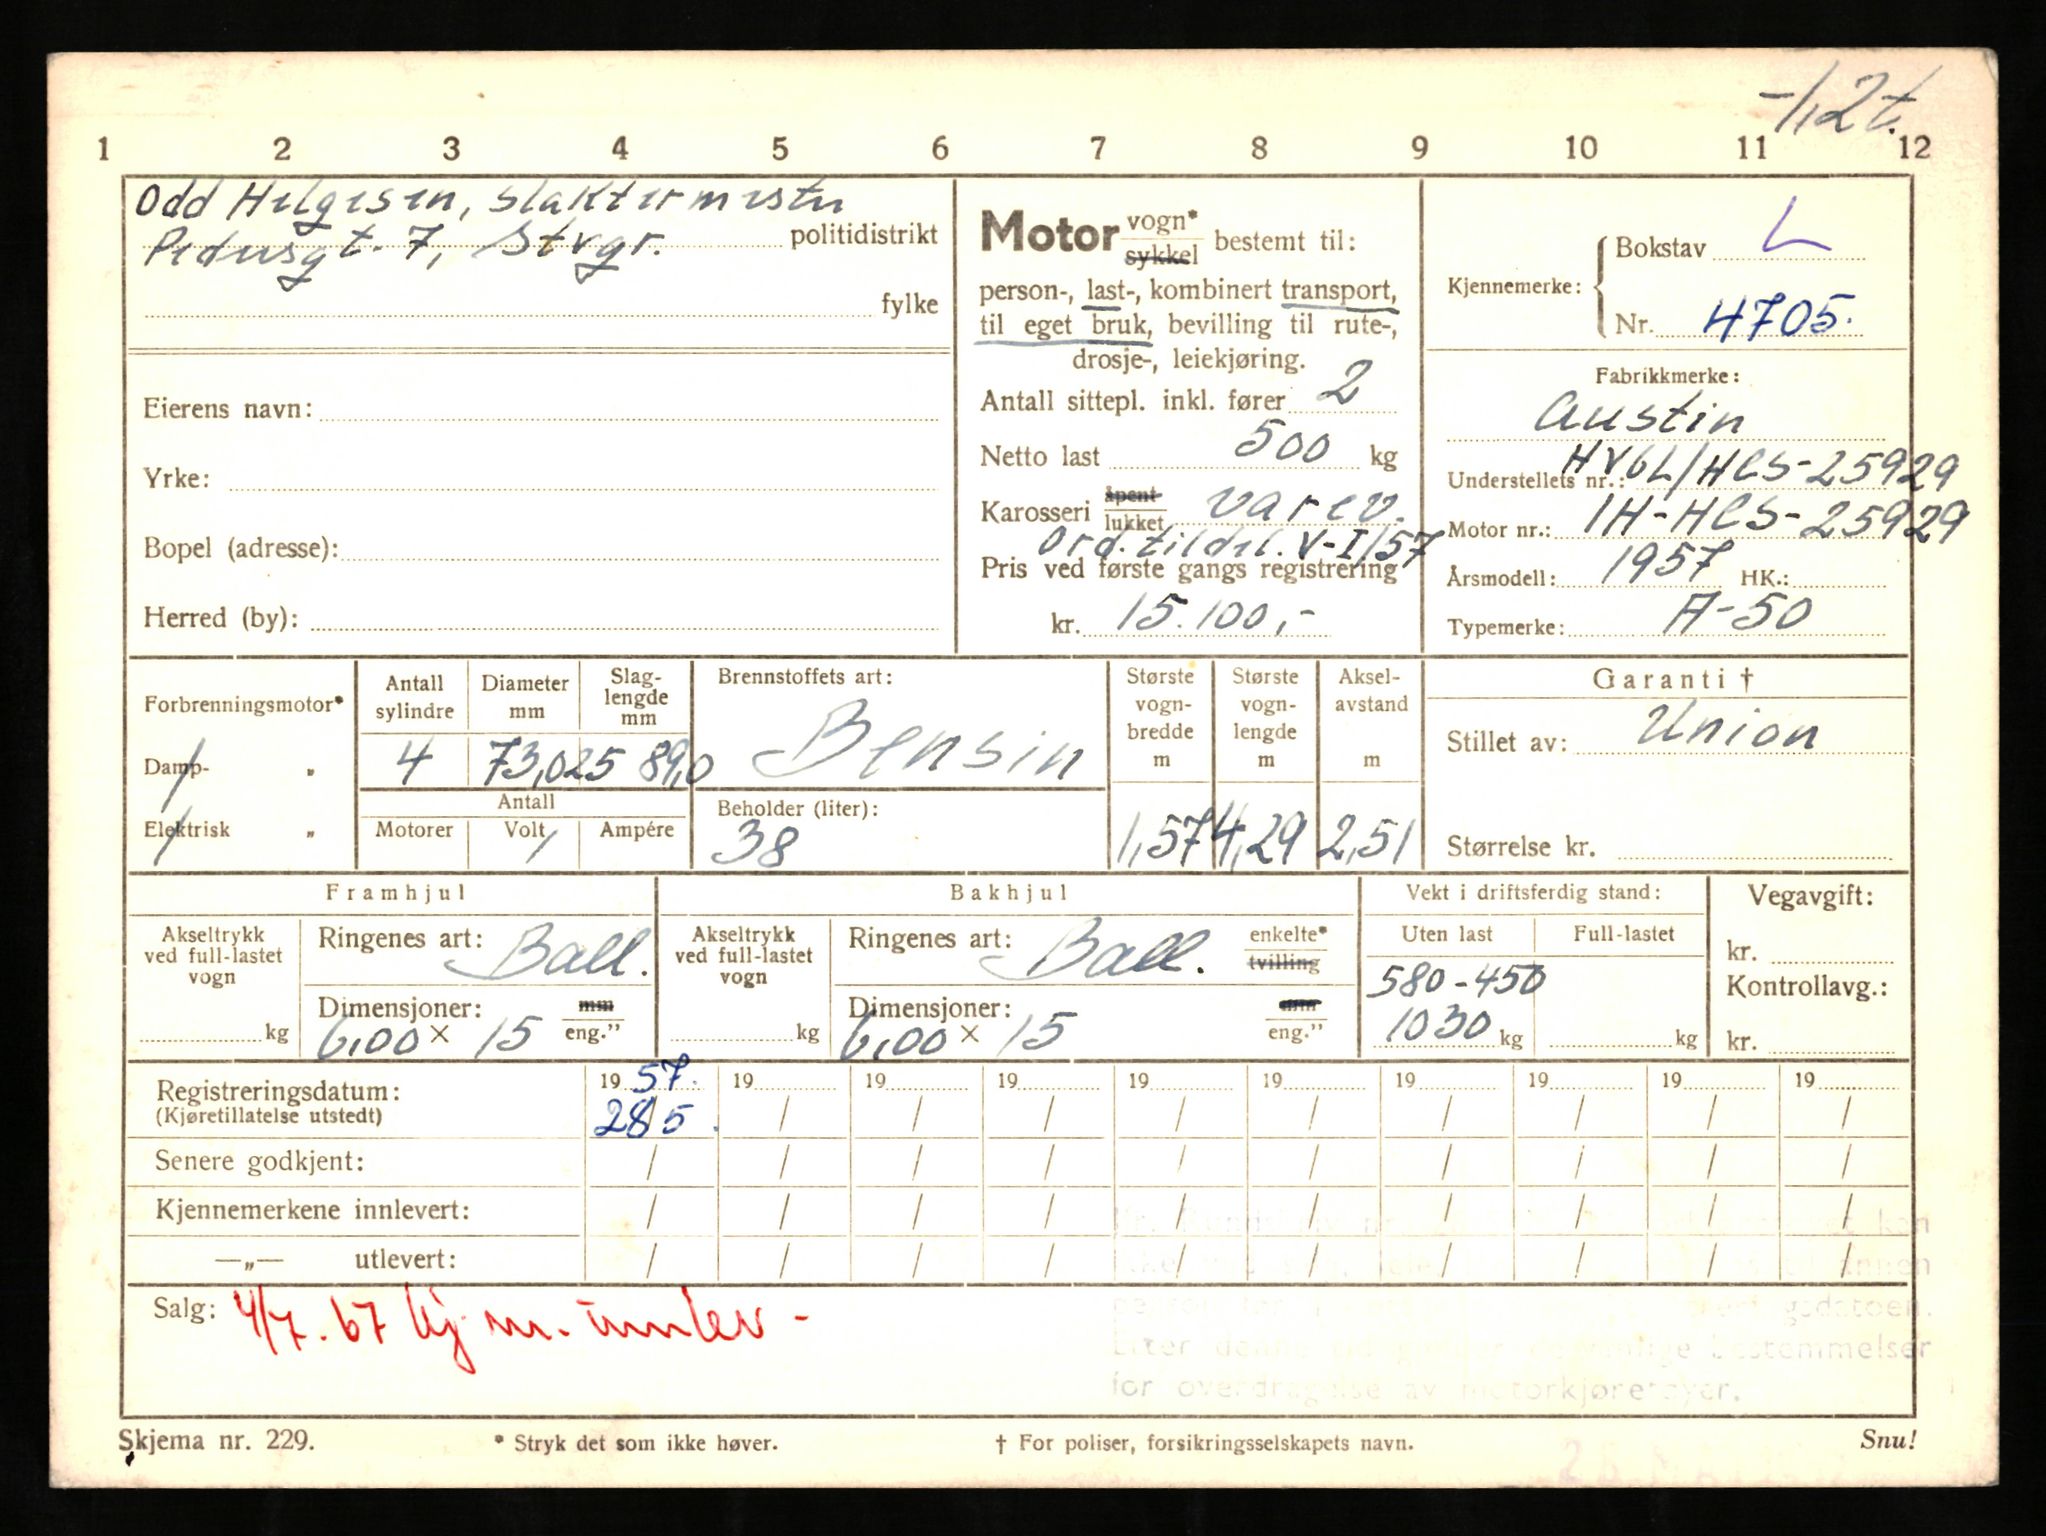 -1,2t.
1 2 3 4 5 6 7 8 9 10 11 12
Odd Helgesen, slaktermester
Pedersgt. 7, Stvgr. politidistrikt
fylke
Eierens navn:
Yrke:
Bopel (adresse):
Herred (by):
Motor vogn* sykkel bestemt til:
person-, last-, kombinert transport,
til eget bruk, bevilling til rute-,
drosje-, leiekjøring.
Antall sittepl. inkl. fører 2
Netto last 500 kg
Karosseri åpent lukket varev.
Ord. tildel. V-I/57
Pris ved første gangs registrering
kr. 15.100,-
Kjennemerke: Bokstav L
Nr. 4705.
Fabrikkmerke:
Austin
Understellets nr.: HV6L/HCS-25929
Motor nr.: 1H-HCS-25929
Årsmodell: 1957 HK.:
Typemerke: A-50
Forbrenningsmotor*
Damp- „
Elektrisk „
Antall sylindre 4
Diameter mm 73,025
Slag-lengde mm 89,0
Antall
Motorer Volt Ampére
Brennstoffets art:
Bensin
Beholder (liter):
38
Største vogn-bredde m 1,57
Største vogn-lengde m 4,29
Aksel-avstand m 2,51
Garanti †
Stillet av: Union
Størrelse kr.
Framhjul
Akseltrykk ved full-lastet vogn
kg
Ringenes art: Ball.
Dimensjoner: mm
6,00 × 15 eng."
Bakhjul
Akseltrykk ved full-lastet vogn
kg
Ringenes art: Ball. enkelte* tvilling
Dimensjoner: mm
6,00 × 15 eng."
Vekt i driftsferdig stand:
Uten last Full-lastet
580-450
1030 kg kg
Vegavgift:
kr.
Kontrollavg.:
kr.
Registreringsdatum: 19 57. 19 19 19 19 19 19 19 19 19
(Kjøretillatelse utstedt) 28/5 / / / / / / / / /
Senere godkjent: / / / / / / / / / /
Kjennemerkene innlevert: / / / / / / / / / /
—„— utlevert: / / / / / / / / / /
Salg: 4/7.67 kj.m. innlev -
for overdragelse av motorkjøretøyer.
Skjema nr. 229. * Stryk det som ikke høver. † For poliser, forsikringsselskapets navn. Snu!